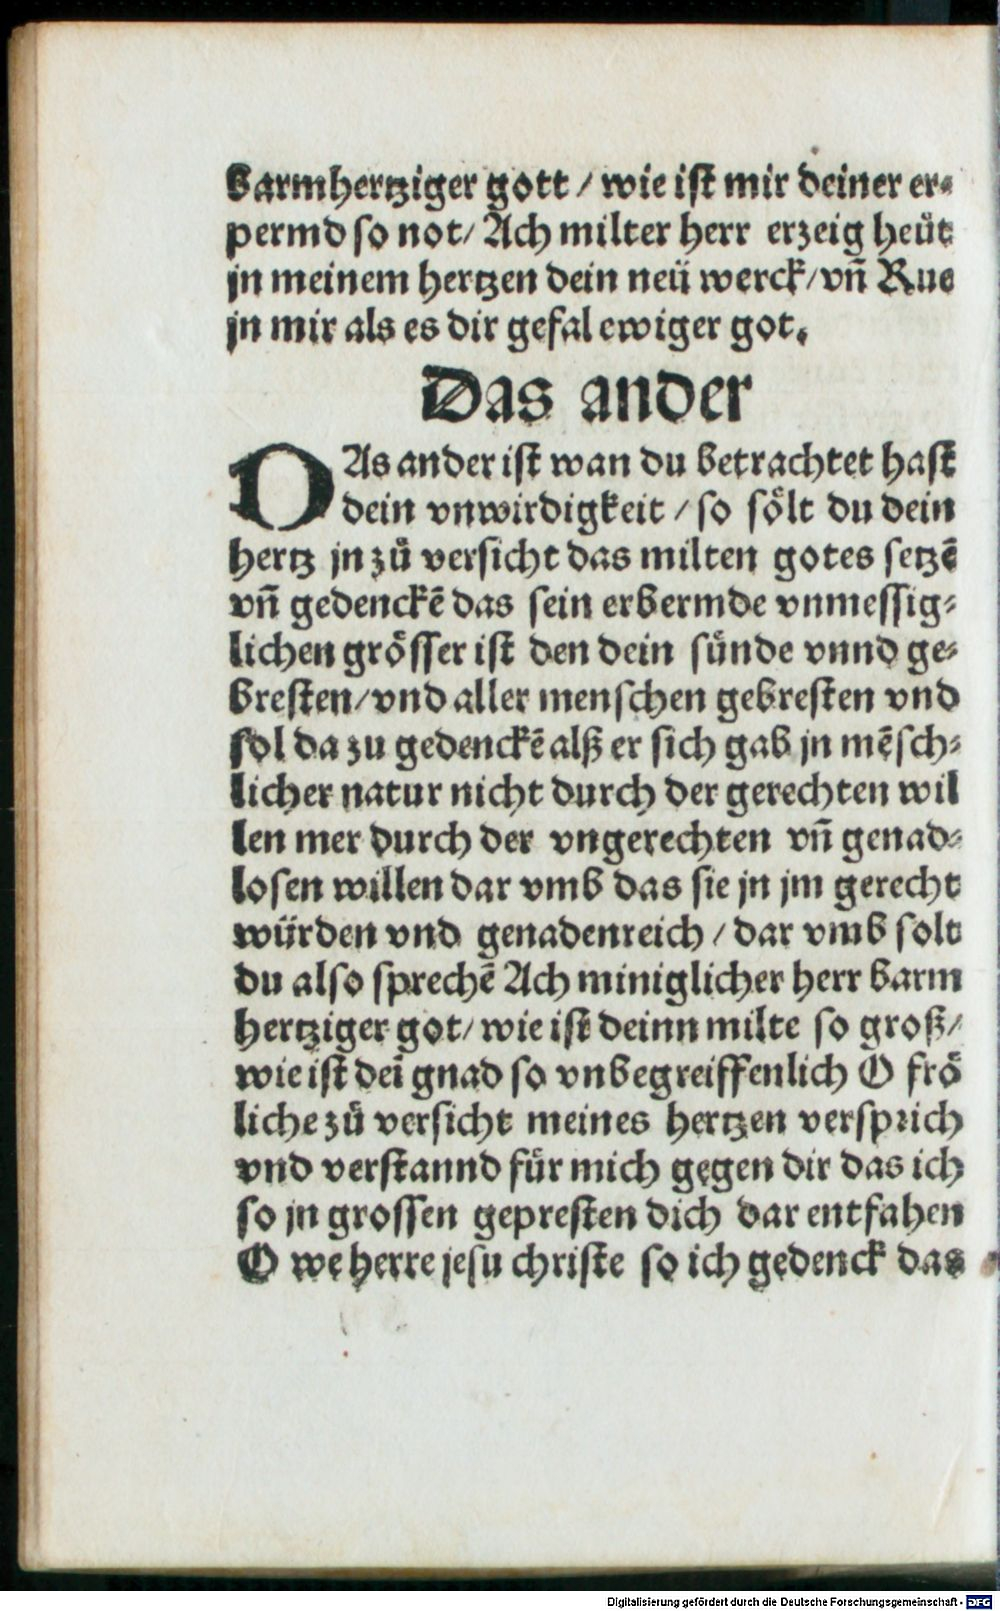 barmhertziger gott / wie ist mir deiner er⸗
permd so not/ Ach milter herr erzeig heüt
jn meinem hertzen dein neü werck/vn̄ Rue
jn mir als es dir gefal ewiger got.
Das ander
DAs ander ist wan du betrachtet hast
dein vnwirdigkeit / so soͤlt du dein
hertz jn zuͦ versicht das milten gotes setzē
vn̄ gedenckē das sein erbermde vnmessig⸗
lichen groͤsser ist den dein sünde vnnd ge⸗
bresten/vnd aller menschen gebresten vnd
sol da zu gedenckē alß er sich gab jn mēsch⸗
licher natur nicht durch der gerechten wil
len mer durch der vngerechten vn̄ genad⸗
losen willen dar vmb das sie jn jm gerecht
würden vnd genadenreich / dar vmb solt
du also sprechē Ach miniglicher herr barm
hertziger got/ wie ist deinn milte so groß/
wie ist deī gnad so vnbegreiffenlich O froͤ
liche zuͦ versicht meines hertzen versprich
vnd verstannd für mich gegen dir das ich
so jn grossen gepresten dich dar entfahen
O we herre jesu christe so ich gedenck das
Digitalisierung gefördert durch die Deutsche Forschungsgemeinschaft - DFG